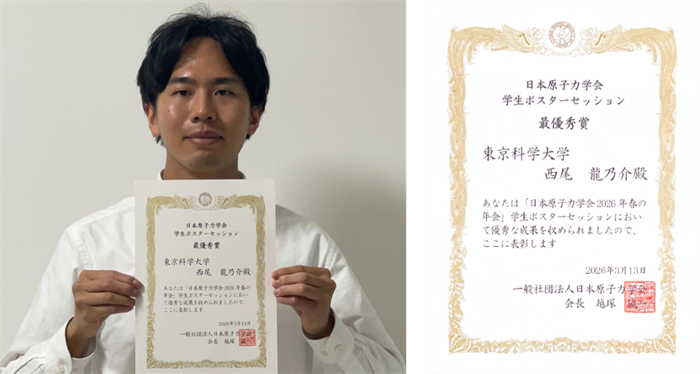 日本原子力学会
学生ポスターセッション
最優秀賞
東京科学大学
西尾 龍乃介殿
あなたは「日本原子力学会2026年春の
年会」学生ポスターセッションにおい
て優秀な成果を収められましたので、
ここに表彰します
2026年3月13日
一般社団法人日本原子力学会
会長 越塚
日本原子力学会
学生ポスターセッション
最優秀賞
東京科学大学
西尾 龍乃介殿
あなたは「日本原子力学会2026年春の
年会」学生ポスターセッションにおい
て優秀な成果を収められましたので、
ここに表彰します
2026年3月13日
一般社団法人日本原子力学会
会長 越塚 誠一